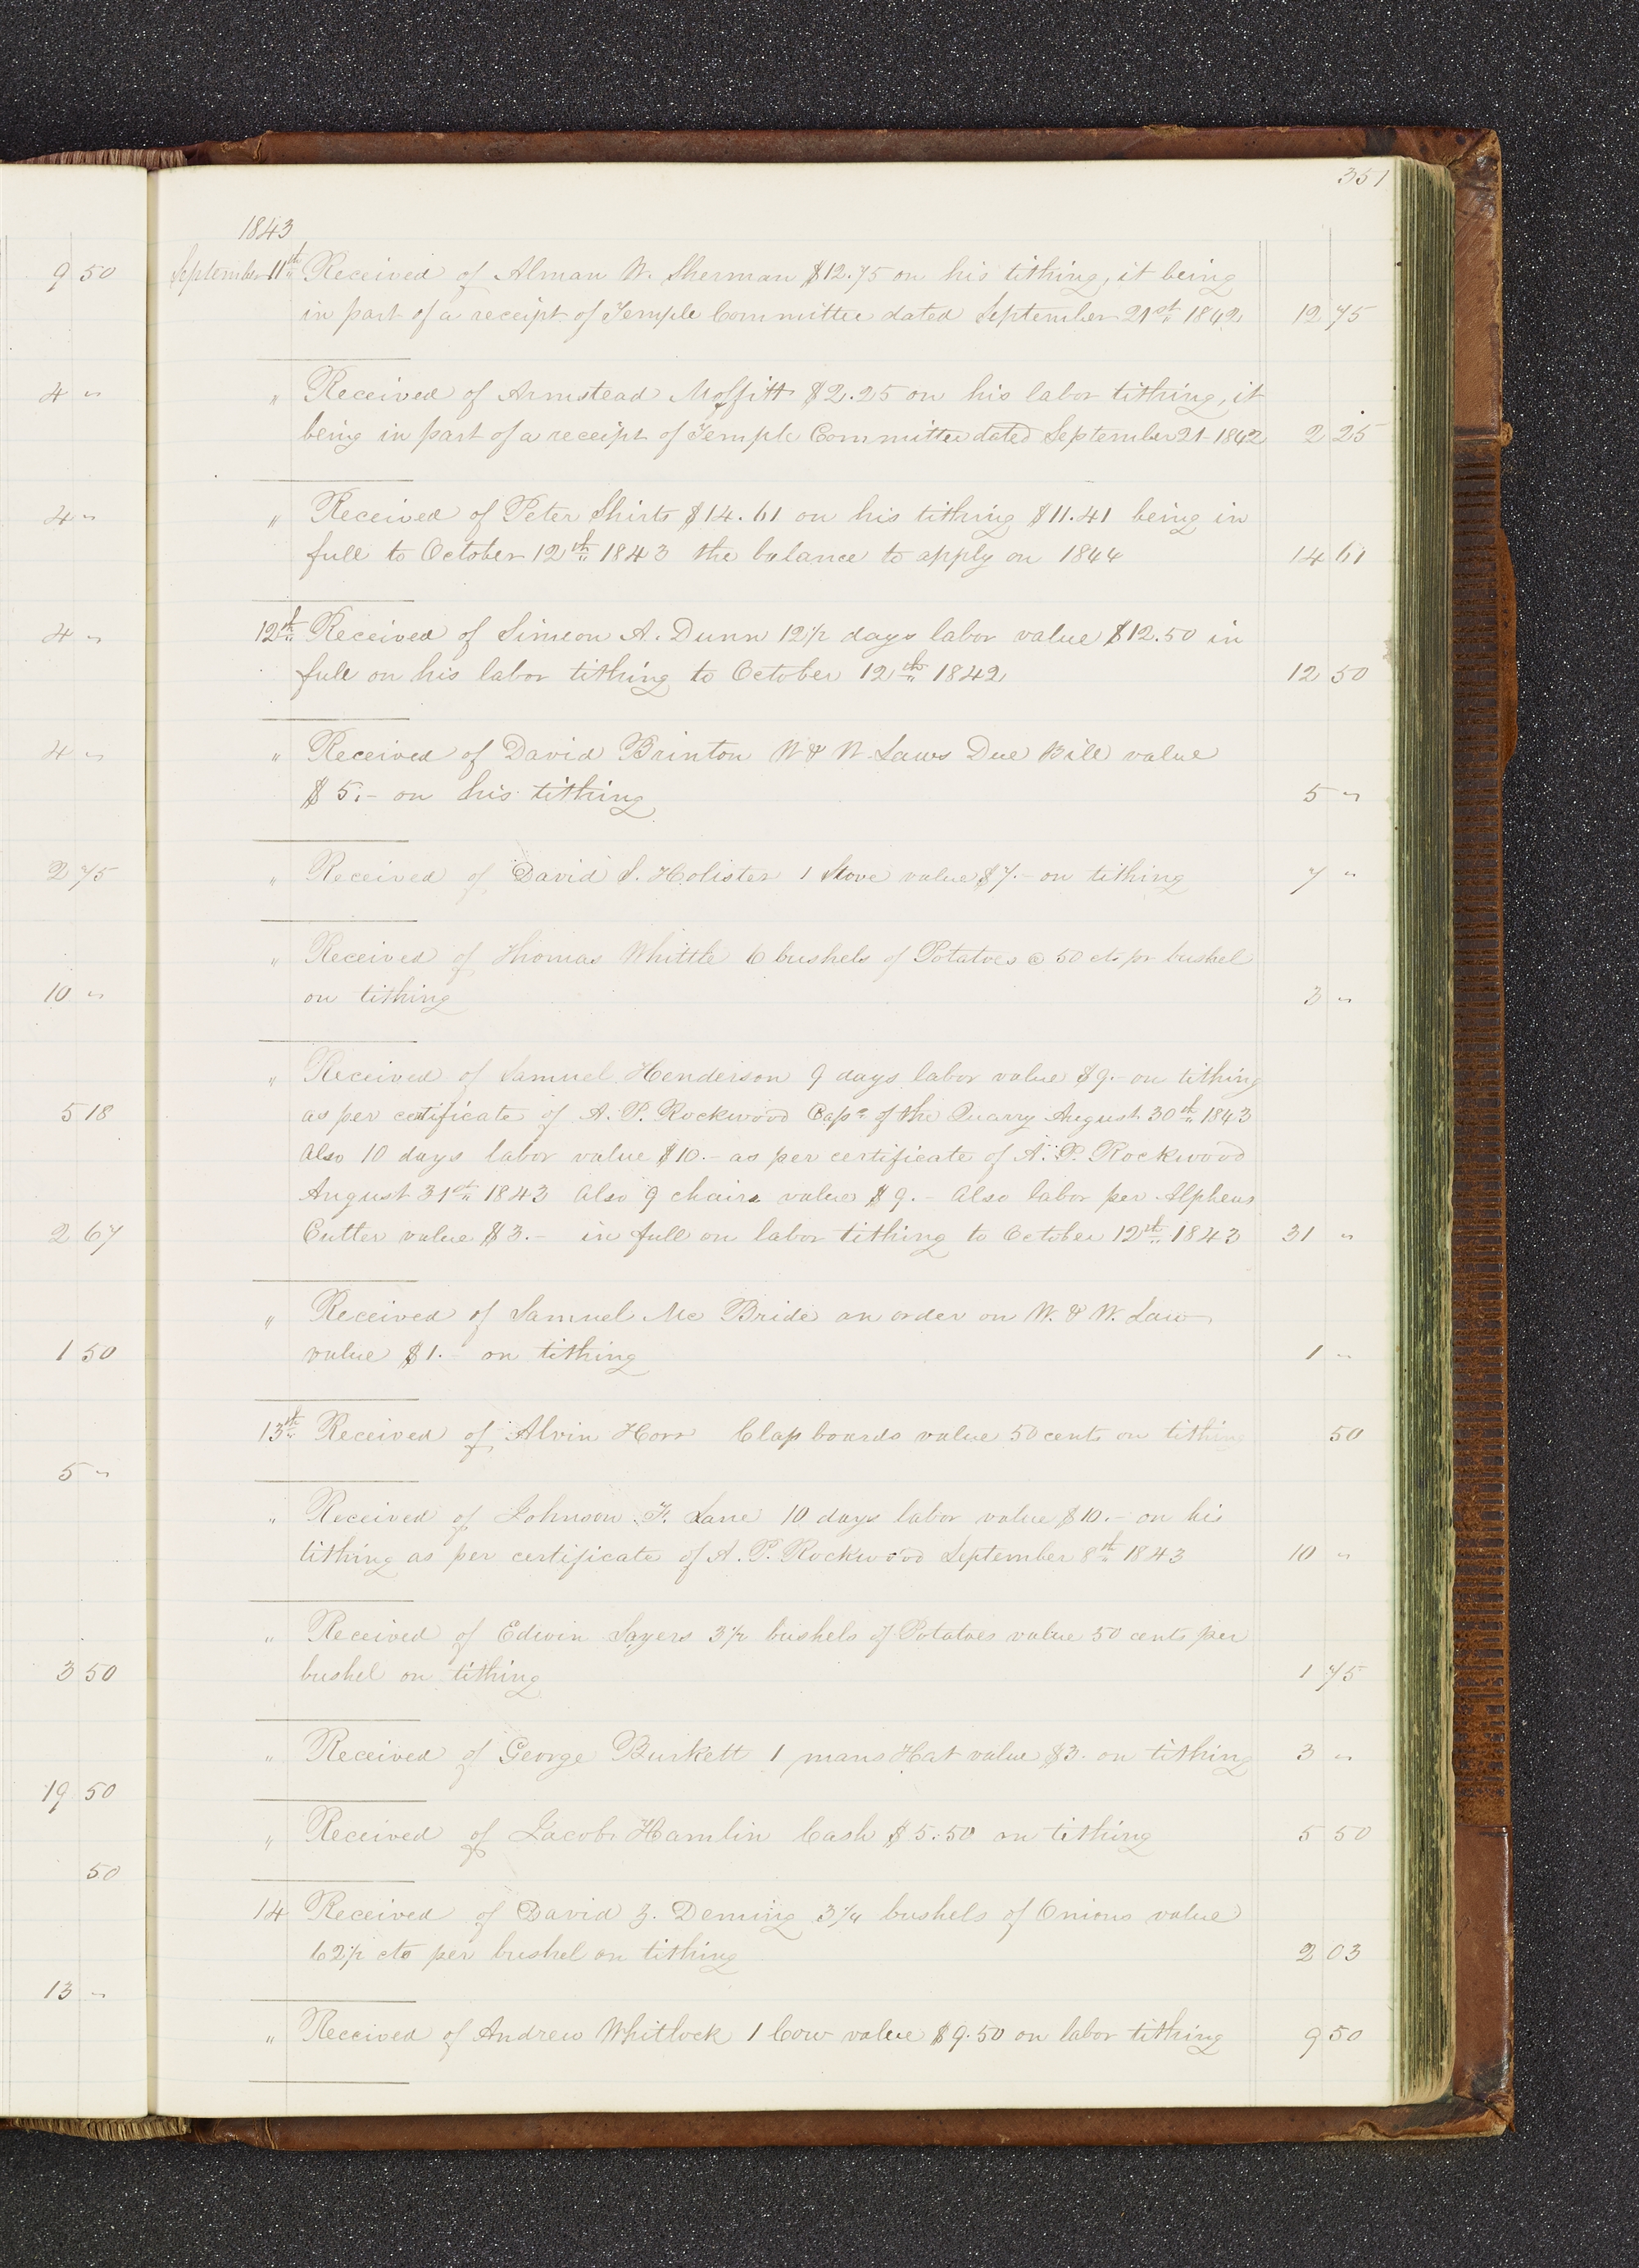 351
1843
September 11th Received of Alman W. Sherman $12.75 on his tithing, it being
in part of a receipt of Temple Committee dated September 21st 1842 12 75
" Received of Armstead Moffitt $2.25 on his labor tithing, it
being in part of a receipt of Temple Committee dated September 21 1842 2 25
" Received of Peter Shirts $14.61 on his tithing $11.41 being in
full to October 12th 1843 the balance to apply on 1844 14 61
12th Received of Simeon A. Dunn 12 1/2 days labor value $12.50 in
full on his labor tithing to October 12th 1842 12 50
" Received of David Brinton W & W Laws Due Bill value
$5.- on his tithing 5 "
" Received of David S. Holister 1 Stove value $7.- on tithing 7 "
" Received of Thomas Whittle 6 bushels of Potatoes @ 50 cts pr bushel
on tithing 3 "
" Received of Samuel Henderson 9 days labor value $9.- on tithing
as per certificate of A. P. Rockwood Capt of the Quarry August 30th 1843
Also 10 days labor value $10.- as per certificate of A. P. Rockwood
August 31st 1843 Also 9 chairs value $9.- Also labor per Alpheus
Cutter value $3.- in full on labor tithing to October 12th 1843 31 "
" Received of Samuel Mc Bride an order on W. & W. Law
value $1.- on tithing 1 "
13th Received of Alvin Horr Clap boards value 50 cents on tithing 50
" Received of Johnson F. Lane 10 days labor value $10.- on his
tithing as per certificate of A. P. Rockwood September 8th 1843 10 "
" Received of Edwin Sayers 3 1/2 bushels of Potatoes value 50 cents per
bushel on tithing 1 75
" Received of George Burkett 1 mans Hat value $3. on tithing 3 "
" Received of Jacob Hamlin Cash $5.50 on tithing 5 50
14 Received of David Z. Deming 3 1/4 bushels of Onions value
62 1/2 cts per bushel on tithing 2 03
" Received of Andrew Whitlock 1 Cow value $9.50 on labor tithing 9 50
9 50
4 "
4 "
4 "
4 "
2 75
10 "
5 18
2 67
1 50
5 "
3 50
19 50
50
13 "